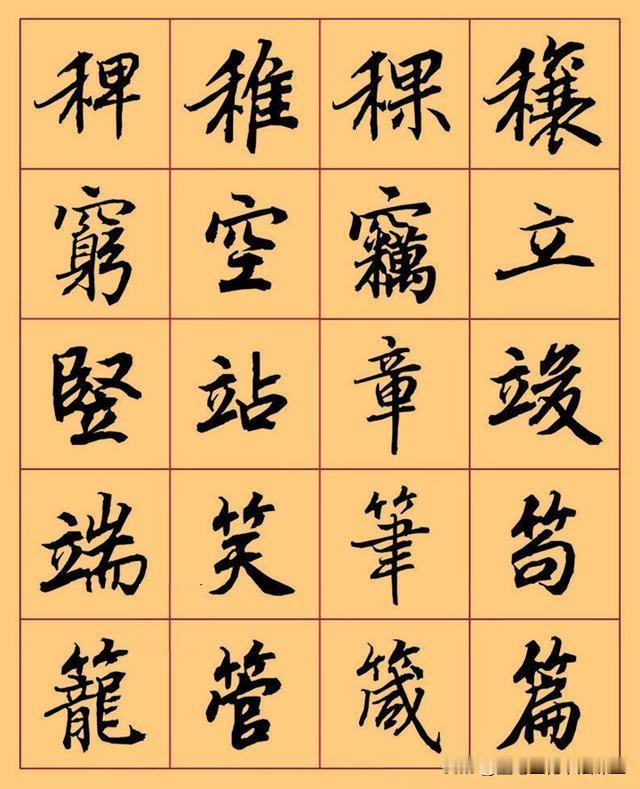 稗 稚 稞 穰
窮 空 竊 立
竪 站 章 竣
端 笑 筆 笱
籠 管 箴 篇